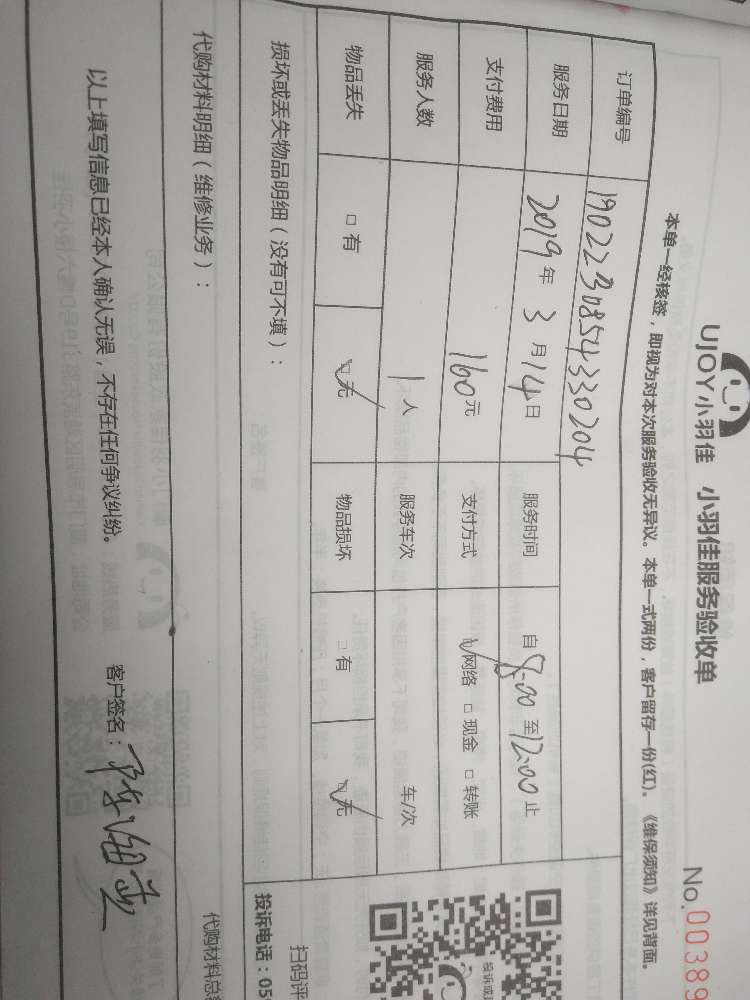 UJOY小羽佳 小羽佳服务验收单 No.00389
本单一经核签，即视为对本次服务验收无异议。本单一式两份，客户留存一份(红)。《维保须知》详见背面。
订单编号 1902230854330204
服务日期 2019年3月14日 服务时间 自8:00至12:00止
支付费用 160元 支付方式 网络 现金 转账
服务人数 1人 服务车次 车/次
物品丢失 有 无 物品损坏 有 无
损坏或丢失物品明细（没有可不填）：
扫码评
投诉电话：05
代购材料明细（维修业务）： 代购材料总
以上填写信息已经本人确认无误，不存在任何争议纠纷。 客户签名：